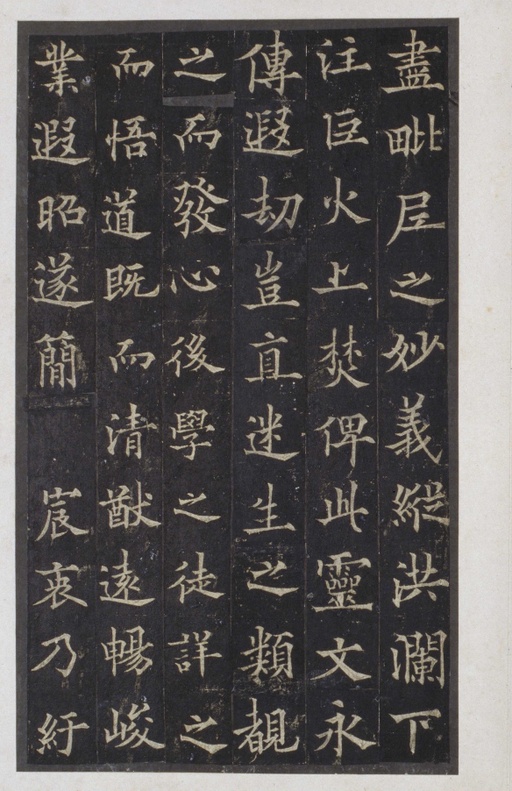 盡毗𡰱之妙義縱洪瀾下
注巨火上焚俾此靈文永
傳遐劫豈直迷生之類覩
之而發心後學之徒詳之
而悟道既而清猷遠暢峻
業遐昭遂簡 宸衷乃紆